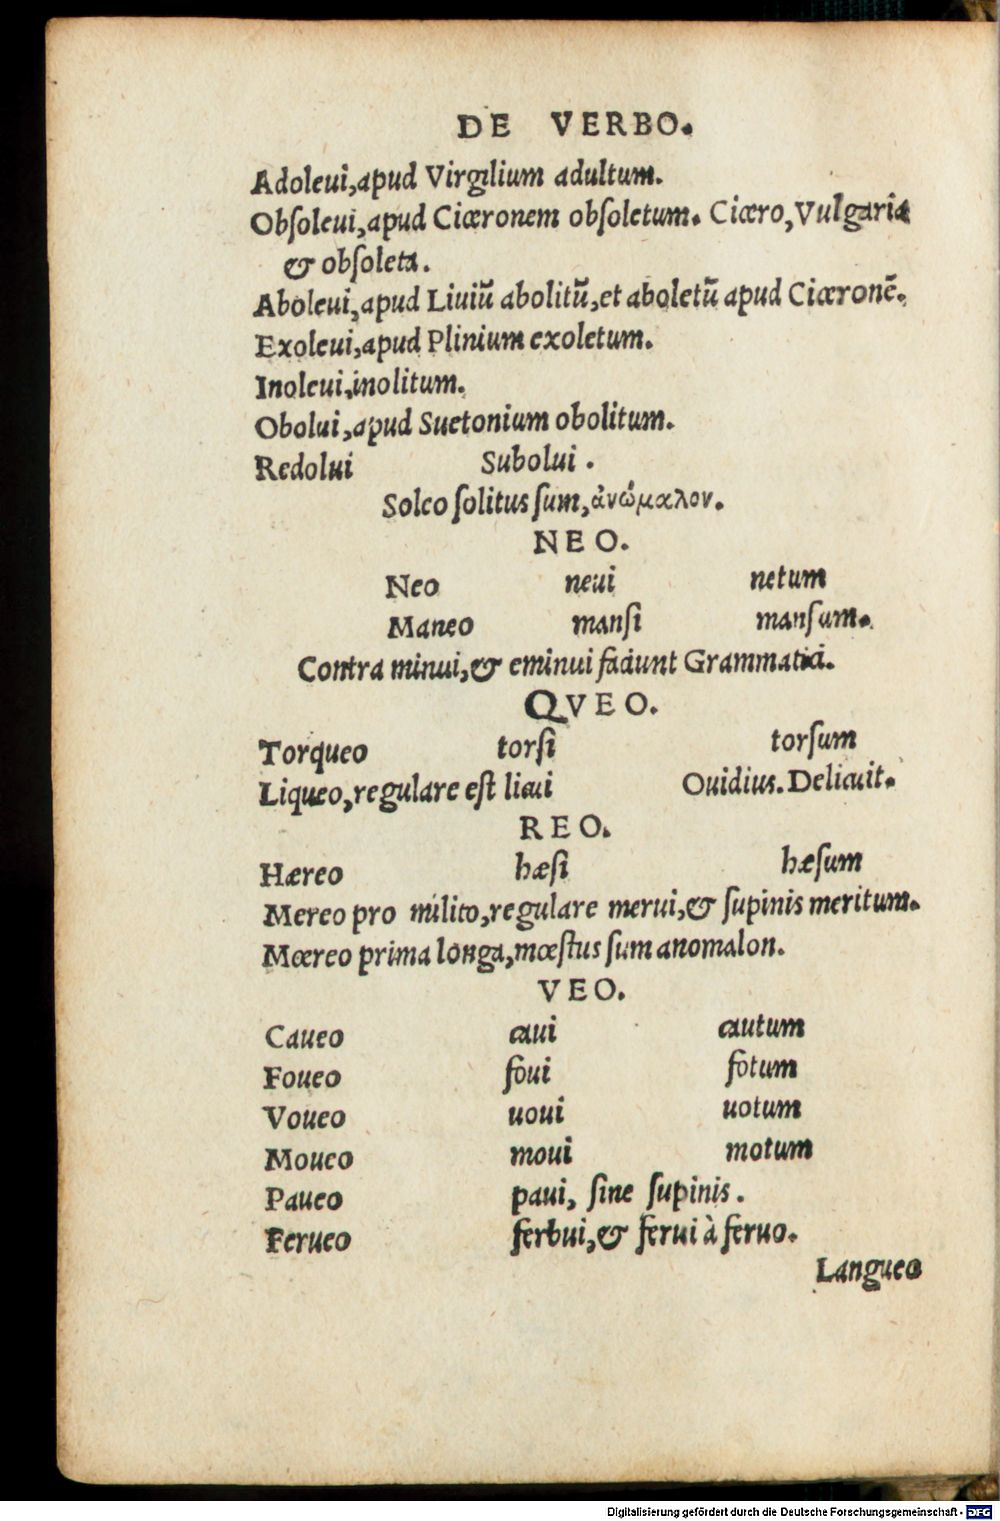 DE VERBO.
Adoleui,apud Virgilium adultum.
Obſoleui,apud Ciceronem obſoletum. Cicero,Vulgaria
& obſoleta.
Aboleui,apud Liuiũ abolitũ,et aboletũ apud Ciceronẽ.
Exoleui,apud Plinium exoletum.
Inoleui,inolitum.
Obolui,apud Suetonium obolitum.
Redolui Subolui.
Soleo ſolitus ſum,ἀνώμαλον.
NEO.
Neo neui netum
Maneo manſi manſum.
Contra minui,& eminui faciunt Grammatici.
QVEO.
Torqueo torſi torſum
Liqueo,regulare eſt licui Ouidius.Delicuit.
REO.
Hæreo hæſi hæſum
Mereo pro milito,regulare merui,& ſupinis meritum.
Mœreo prima longa,mœſtus ſum anomalon.
VEO.
Caueo caui cautum
Foueo foui fotum
Voueo uoui uotum
Moueo moui motum
Paueo paui, ſine ſupinis.
Ferueo ferbui,& ferui à feruo.
Langueo
Digitalisierung gefördert durch die Deutsche Forschungsgemeinschaft - DFG